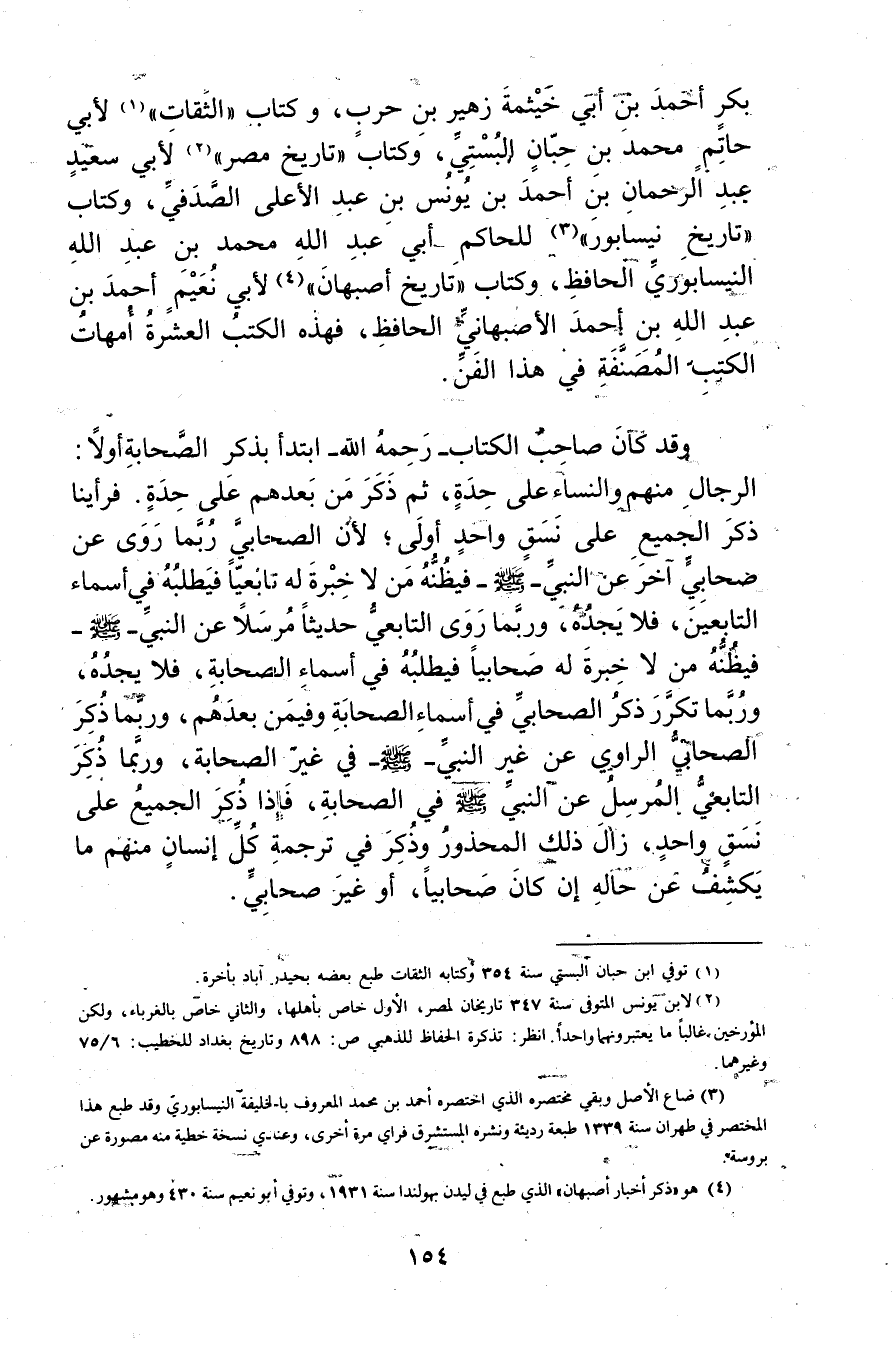 بكرٍ أحمدَ بنَ أبي خَيْثمةَ زهيرِ بنِ حربٍ، وكتاب «الثَّقاتِ»(١) لأبي
حاتمٍ محمد بن حِبّانٍ البُسْتيِّ، وكتاب «تاريخ مصر»(٢) لأبي سعيدٍ
عبدِ الرحمانِ بن أحمدَ بن يُونُس بنِ عبد الأعلى الصَّدَفيِّ، وكتاب
«تاريخِ نيسابورَ»(٣) للحاكم أبي عبدِ اللهِ محمد بن عبدِ الله
النيسابوريِّ الحافظِ، وكتاب «تاريخ أصبهانَ»(٤) لأبي نُعَيْمٍ أحمدَ بن
عبدِ اللهِ بن أحمدَ الأصبهانيِّ الحافظِ، فهذه الكتبُ العشرةُ أُمهاتُ
الكتبِ المُصَنَّفَةِ في هذا الفَنِّ.
وقد كانَ صاحبُ الكتاب ـ رَحِمهُ الله ـ ابتدأ بذكر الصَّحابةِ أولًا:
الرجالِ منهم والنساءِ على حِدَةٍ، ثم ذَكَرَ مَن بَعدهم عَلى حِدَةٍ. فرأينا
ذكرَ الجميعِ على نَسَقٍ واحدٍ أولَى؛ لأن الصحابيَّ رُبَّما رَوَى عن
صحابيٍّ آخرَ عن النبيِّ ـ ﷺ ـ فيظُنُّهُ مَن لا خِبْرةَ له تابعيّاً فيَطلبُهُ في أسماء
التابعينَ، فلا يَجدُهُ، وربَّما رَوَى التابعيُّ حديثاً مُرسَلًا عن النبيِّ ـ ﷺ ـ
فيظُنُّهُ من لا خِبرةَ له صَحابياً فيطلبُهُ في أسماءِ الصحابةِ، فلا يجدُهُ،
ورُبَّما تكرَّرَ ذكرُ الصحابيِّ في أسماءِ الصحابَةِ وفيمَن بعدَهُم، وربَّما ذُكِرَ
الصحابيُّ الراوي عن غيرِ النبيِّ ـ ﷺ ـ في غيرِ الصحابة، وربَّما ذُكِرَ
التابعيُّ المُرسِلُ عن النبيِّ ﷺ في الصحابةِ، فَإذا ذُكِرَ الجميعُ على
نَسَقٍ واحدٍ، زالَ ذلك المحذورُ وذُكِرَ في ترجمةِ كُلِّ إنسانٍ منهم ما
يَكشفُ عَن حَالهِ إن كانَ صَحابياً، أو غيرَ صحابيٍّ.
(١) توفي ابن حبان البستي سنة ٣٥٤ وكتابه الثقات طبع بعضه بحيدر آباد بأخرة.
(٢) لابن يونس المتوفى سنة ٣٤٧ تاريخان لمصر، الأول خاص بأهلها، والثاني خاص بالغرباء، ولكن
المؤرخين غالباً ما يعتبرونهما واحداً. انظر: تذكرة الحفاظ للذهبي ص: ٨٩٨ وتاريخ بغداد للخطيب: ٧٥/٦
وغيرهما.
(٣) ضاع الأصل وبقي مختصره الذي اختصره أحمد بن محمد المعروف بالخليفة النيسابوريّ وقد طبع هذا
المختصر في طهران سنة ١٣٣٩ طبعة رديئة ونشره المستشرق فراي مرة أخرى، وعندي نسخة خطية منه مصورة عن
بروسة.
(٤) هو «ذكر أخبار أصبهان» الذي طبع في ليدن بهولندا سنة ١٩٣١، وتوفي أبو نعيم سنة ٤٣٠ وهو مشهور.
١٥٤